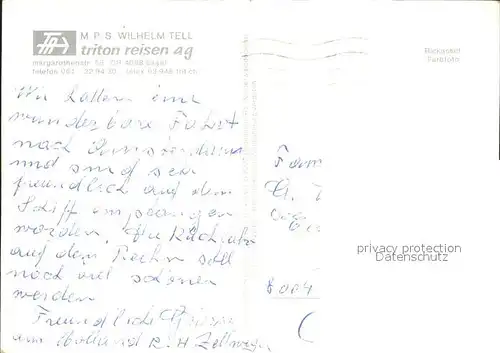 M P S WILHELM TELL
triton reisen ag
margarethenstr. 58 CH 4053 Basel
telefon 061 22 94 30 telex 63 948 tri ch
Wir hatten eine
wunderbare Fahrt
nach Amsterdam
und sind sehr
freundlich auf dem
Schiff empfangen
worden, die Rückfahrt
auf dem Rhein soll
noch viel schöner
werden
Freundliche Grüsse
aus Holland R. H. Zellweger
Rückantwort
Fam
G.
8004
privacy protection
Datenschutz